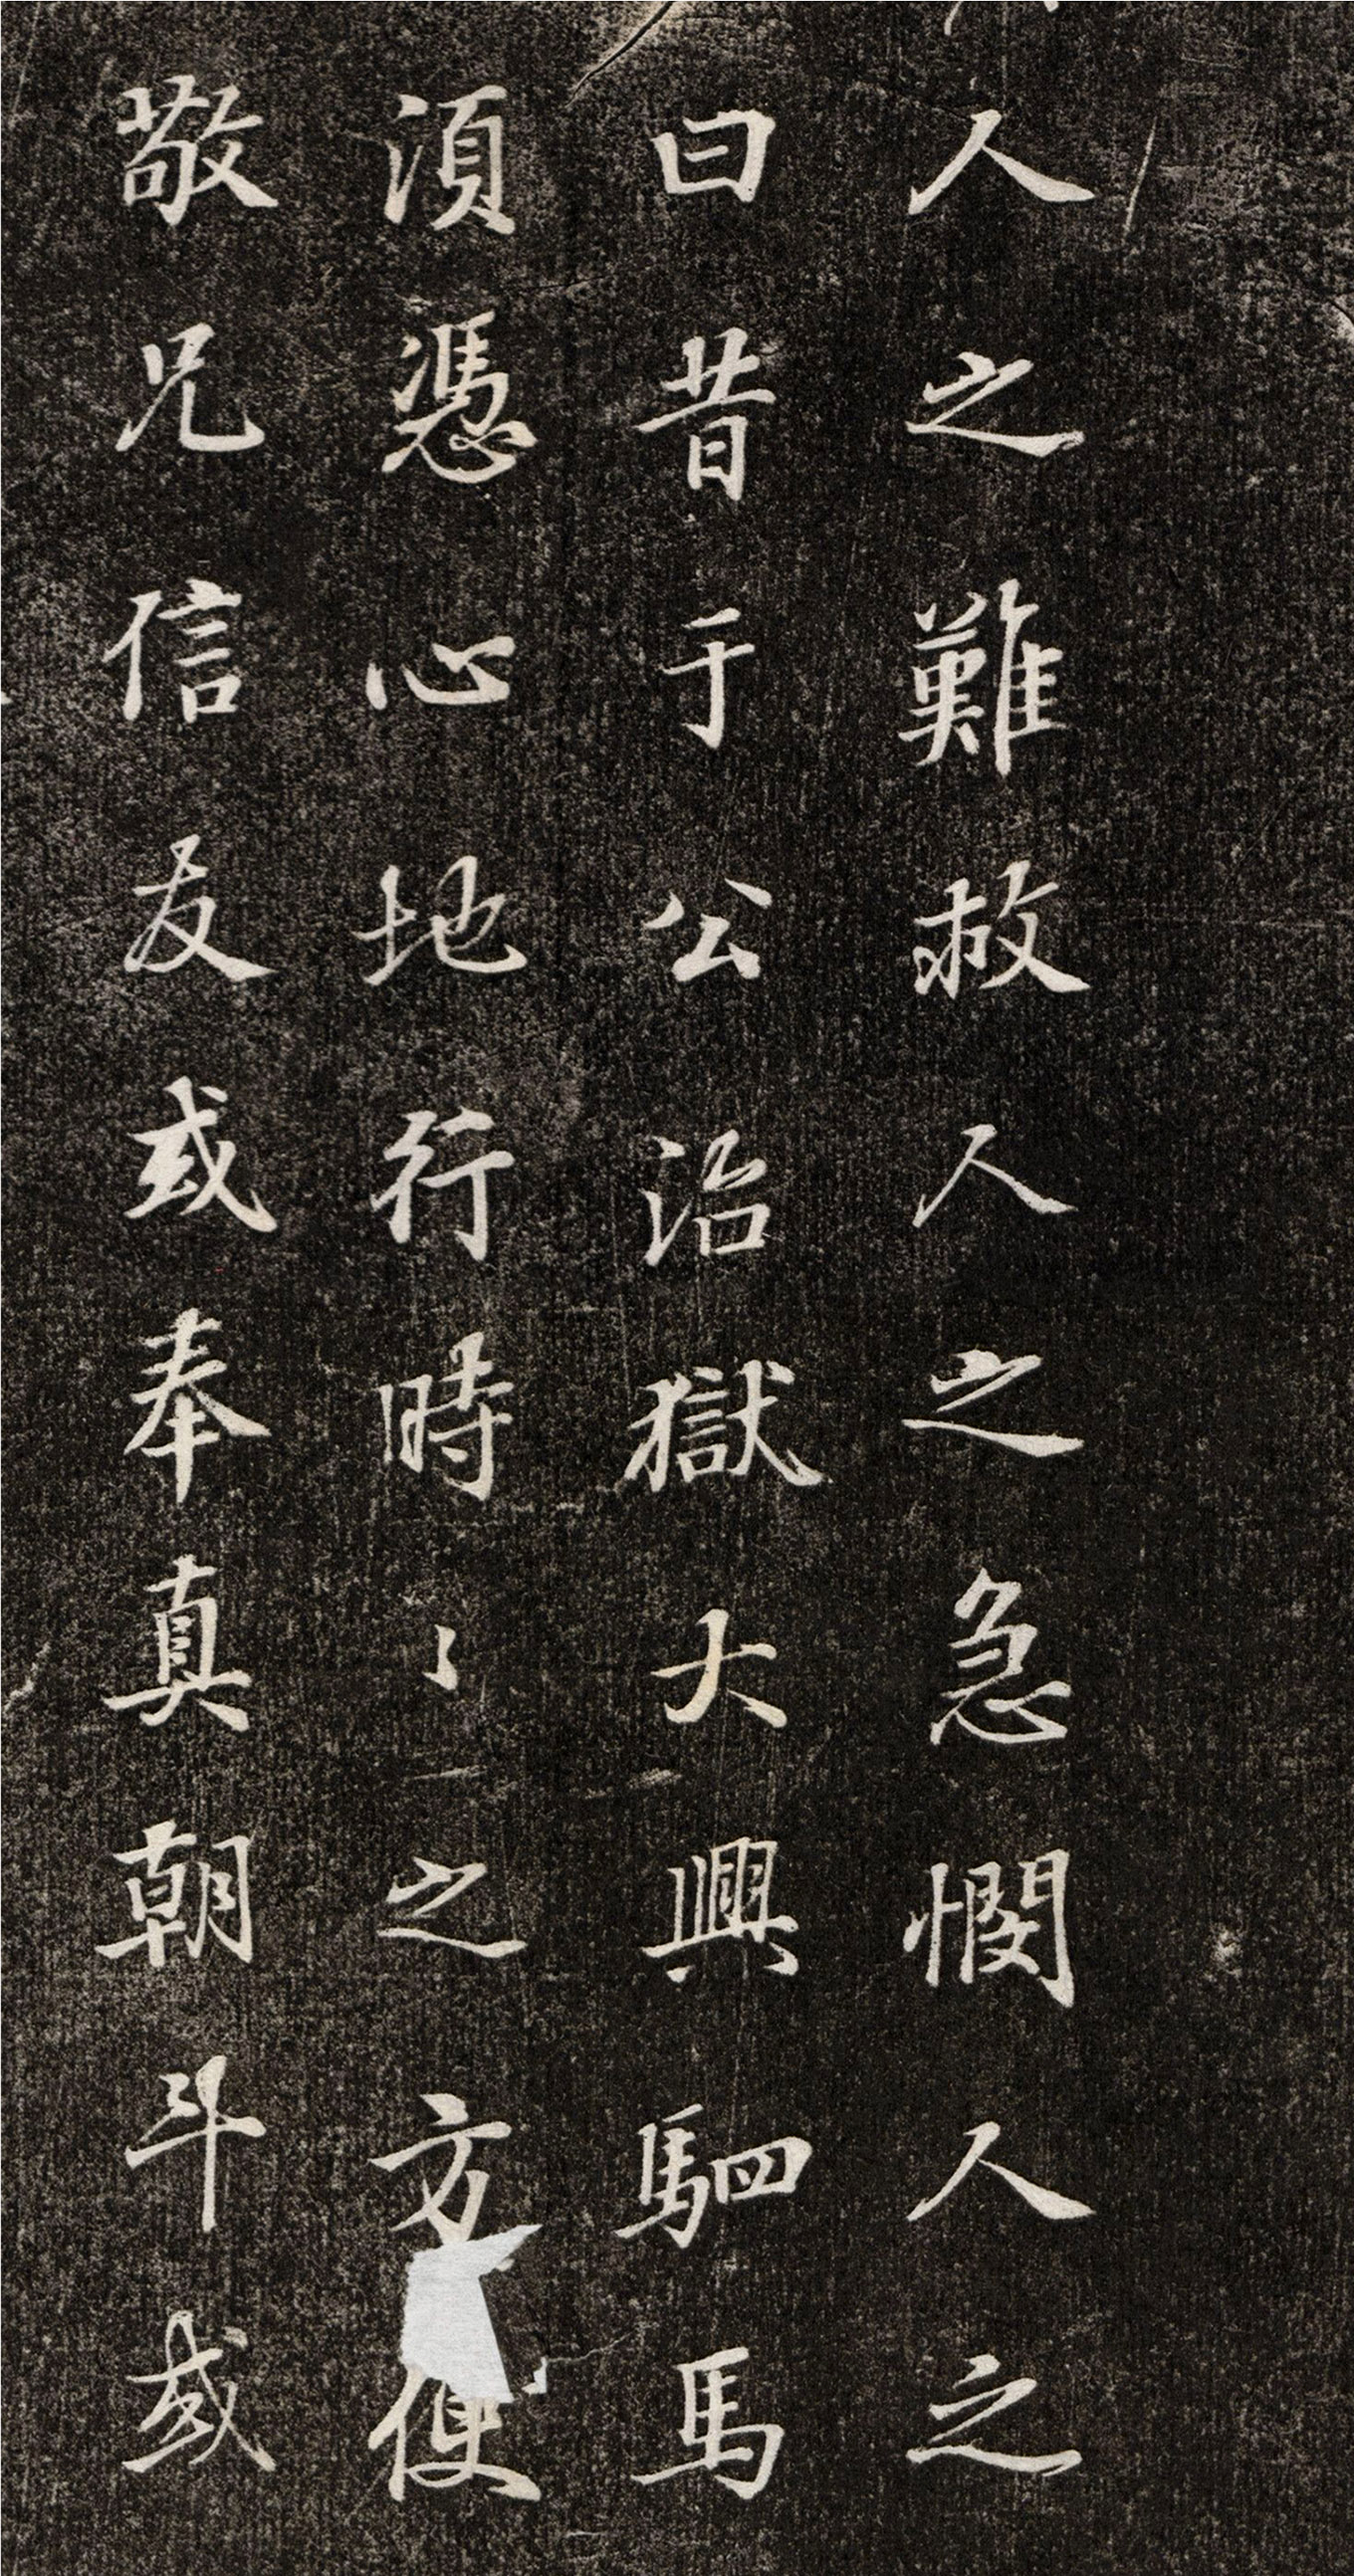 人之難救人之急憫人之
曰昔于公治獄大興駟馬
須憑心地行時〻之方便
敬兄信友或奉真朝斗或